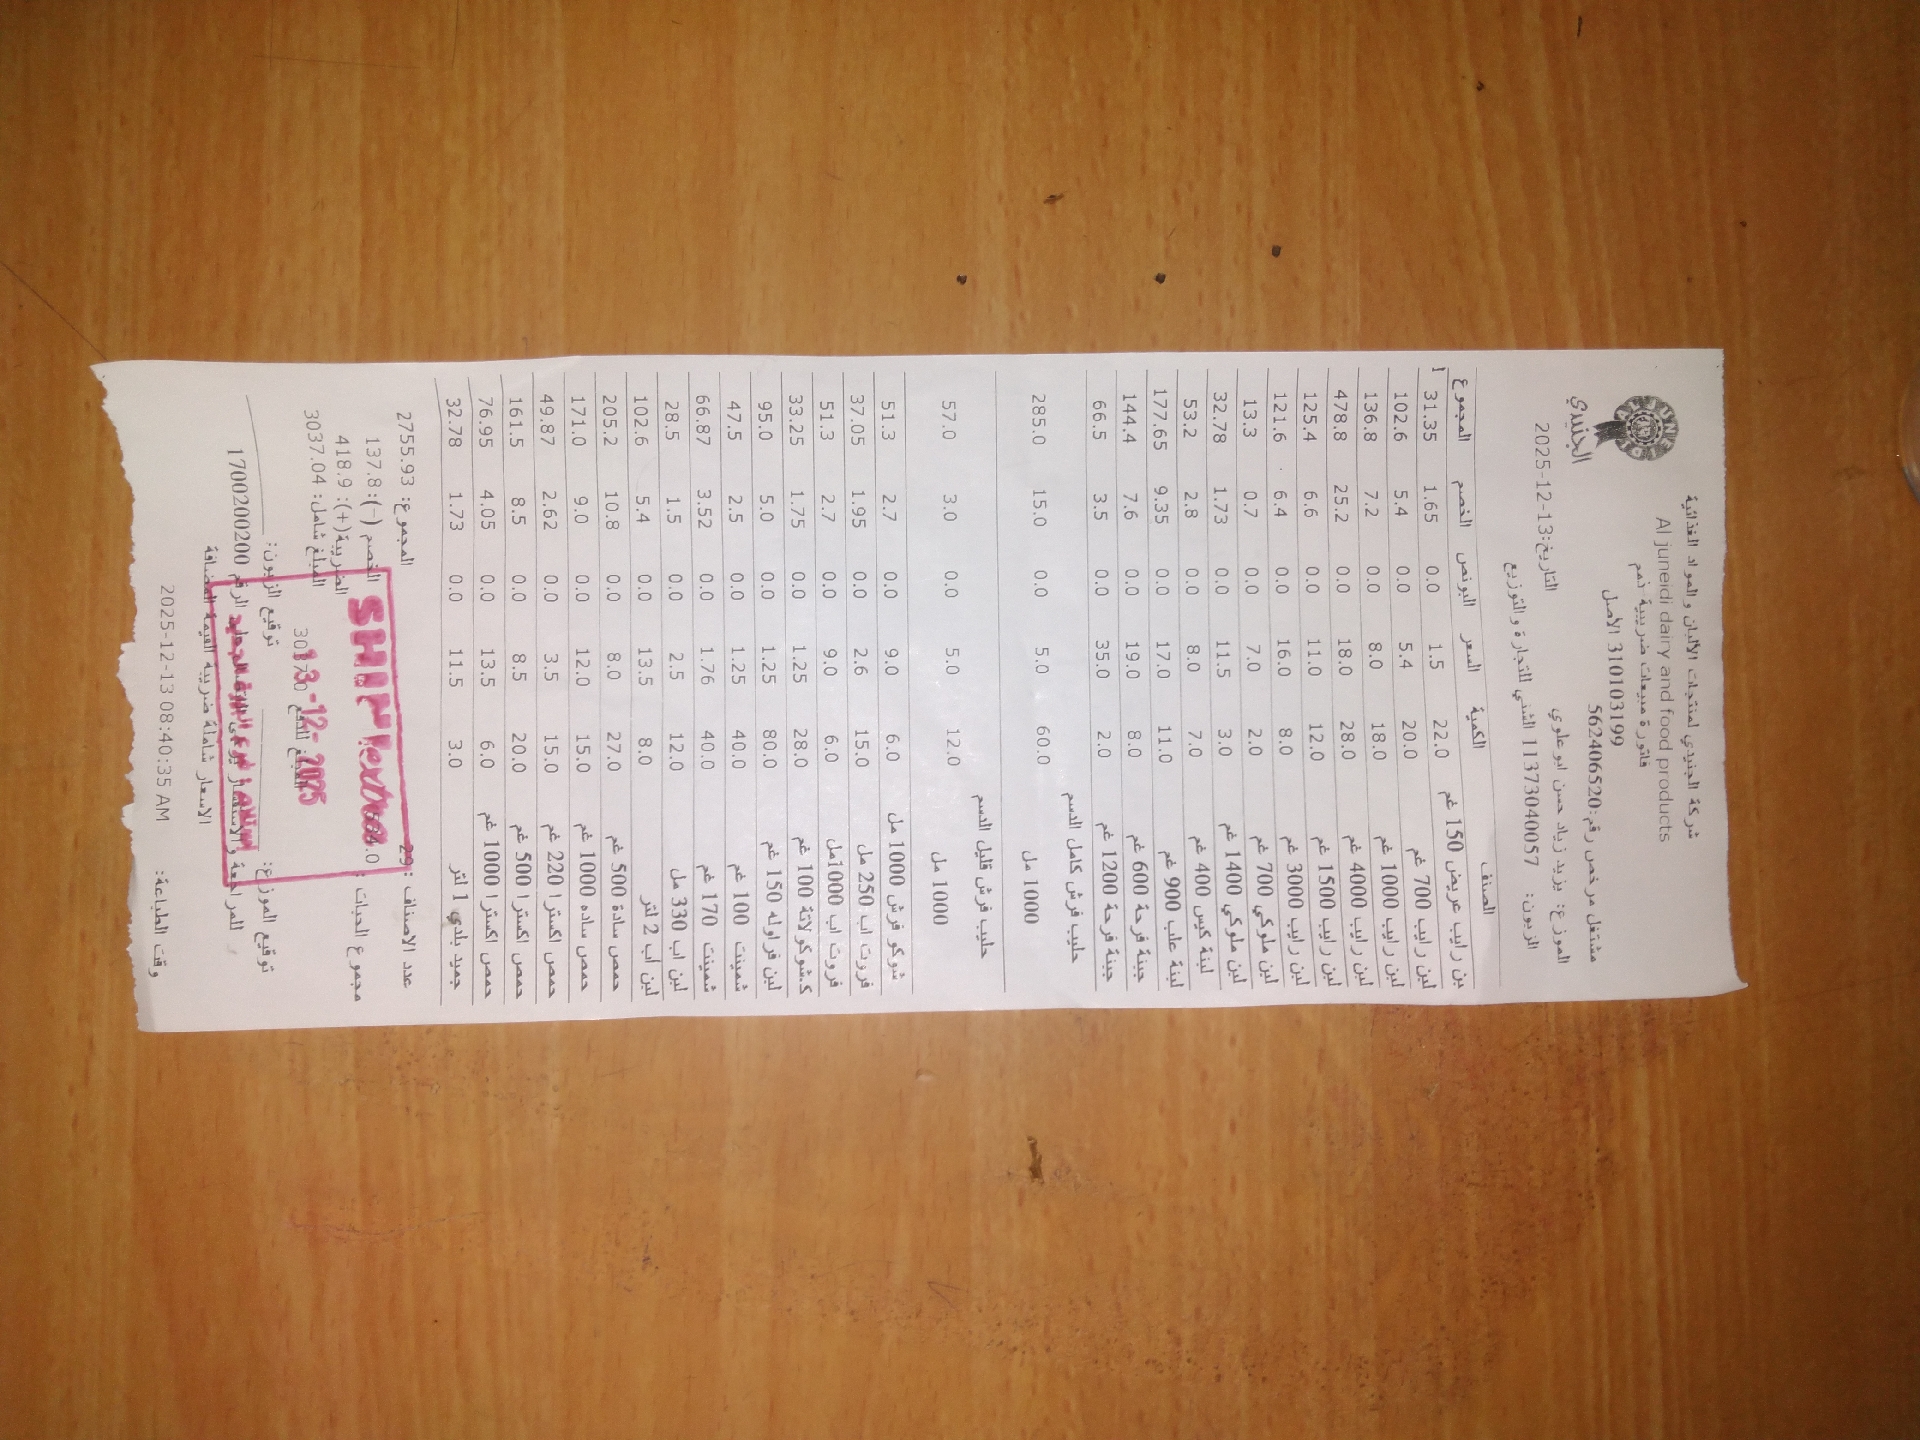 الجنيدي
شركة الجنيدي لمنتجات الألبان و المواد الغذائية
Al juneidi dairy and food products
فاتورة مبيعات ضريبية ذمم
310103199 الأصل
مشتغل مرخص رقم:562406520
التاريخ:13-12-2025
الموزع: يزيد زياد حسن ابو علوي
الزبون: 1137304057 الشني للتجارة و التوزيع
الصنف الكمية السعر البونص الخصم المجموع
بن رايب عريض 150 غم 22.0 1.5 0.0 1.65 31.35
لبن رايب 700 غم 20.0 5.4 0.0 5.4 102.6
لبن رايب 1000 غم 18.0 8.0 0.0 7.2 136.8
لبن رايب 4000 غم 28.0 18.0 0.0 25.2 478.8
لبن رايب 1500 غم 12.0 11.0 0.0 6.6 125.4
لبن رايب 3000 غم 8.0 16.0 0.0 6.4 121.6
لبن ملوكي 700 غم 2.0 7.0 0.0 0.7 13.3
لبن ملوكي 1400 غم 3.0 11.5 0.0 1.73 32.78
لبنة كيس 400 غم 7.0 8.0 0.0 2.8 53.2
لبنة علب 900 غم 11.0 17.0 0.0 9.35 177.65
جبنة فرحة 600 غم 8.0 19.0 0.0 7.6 144.4
جبنة فرحة 1200 غم 2.0 35.0 0.0 3.5 66.5
حليب فرش كامل الدسم
1000 مل 60.0 5.0 0.0 15.0 285.0
حليب فرش قليل الدسم
1000 مل 12.0 5.0 0.0 3.0 57.0
شوكو فرش 1000 مل 6.0 9.0 0.0 2.7 51.3
فروت اب 250 مل 15.0 2.6 0.0 1.95 37.05
فروت اب 1000مل 6.0 9.0 0.0 2.7 51.3
ك.شوكولاتة 100 غم 28.0 1.25 0.0 1.75 33.25
لبن فراوله 150 غم 80.0 1.25 0.0 5.0 95.0
شمينت 100 غم 40.0 1.25 0.0 2.5 47.5
شمينت 170 غم 40.0 1.76 0.0 3.52 66.87
لبن اب 330 مل 12.0 2.5 0.0 1.5 28.5
لبن أب 2 لتر 8.0 13.5 0.0 5.4 102.6
حمص سادة 500 غم 27.0 8.0 0.0 10.8 205.2
حمص ساده 1000 غم 15.0 12.0 0.0 9.0 171.0
حمص اكسترا 220 غم 15.0 3.5 0.0 2.62 49.87
حمص اكسترا 500 غم 20.0 8.5 0.0 8.5 161.5
حمص اكسترا 1000 غم 6.0 13.5 0.0 4.05 76.95
جميد بلدي 1 لتر 3.0 11.5 0.0 1.73 32.78
عدد الاصناف :29 المجموع: 2755.93
مجموع الحبات : الخصم (-):137.8
الضريبة(+): 418.9
المبلغ شامل: 3037.04
SHINI
13-12-2025
توقيع الموزع: توقيع الزبون:
للمراجعة و الاستفسار الرقم 1700200200
الاسعار شاملة ضريبة القيمة المضافة
وقت الطباعة: 2025-12-13 08:40:35 AM